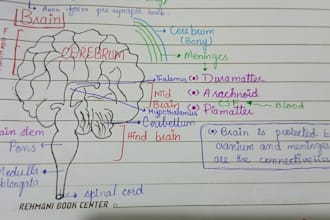 Axon form pre synapse bulb
Brain
Cerebrum
(Bony)
Meninges
CEREBRUM
Thalamus
(•) Duramatter
Mid
Brain
(•) Arachnoid
CSF
Blood
Hypothalamus
(•) Piamatter
Cerebellum
Hind brain
ain stem
Pons
(•) Brain is protected b
cranium and meninges
are the connective tiss
Medulla
oblongata
spinal cord
REHMANI BOOK CENTER